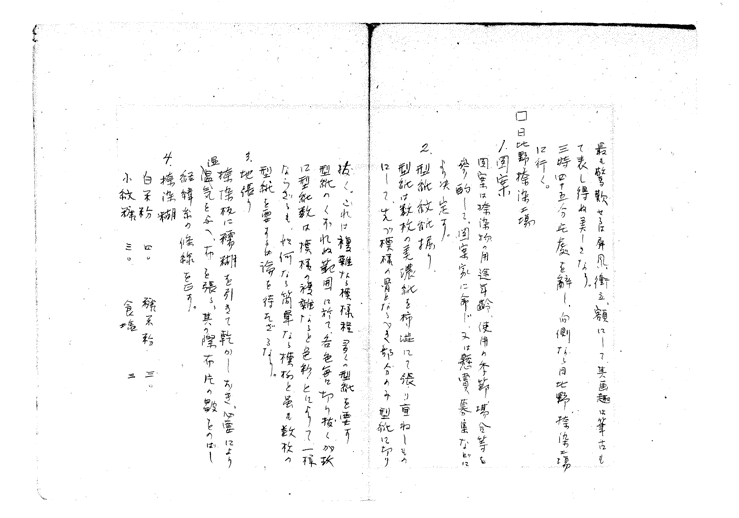 最も驚歎せるは屏風、衝立、額にして其画趣は筆舌も
て表し得ぬ美しさなり。
三時四十五分此處を辞し、向側なる日比野捺染工場
に行く。
□日比野捺染工場
1. 図案
図案は捺染物の用途年齢、使用の季節場合等を
参酌して、図案家に命じ又は懸賞募集などに
より決定す。
2. 型紙紋紙掘り
型紙は数枚の美濃紙を柿渋にて張り重ねしもの
にして、先づ模様の骨となるべき部分のみ型紙に切り
抜く。これは複雑なる模様程多くの型紙を要す
型紙のくづれぬ範囲に於て各色毎に切り抜くが故
に型紙数は模様の複雑なると色彩とによりて一様
ならざるも、如何なる簡単なる模様と雖も数枚の
型紙を要するは論を待たざるなり。
3. 地張り
捺染板に糯糊を引きて乾かしおき、必要により
温気を与へ布を張る、其の際布片の皺をのばし
経緯糸の條線を正す。
4. 捺染糊
白米粉 四〇 糠米粉 三〇
小紋糠 三〇 食塩 三